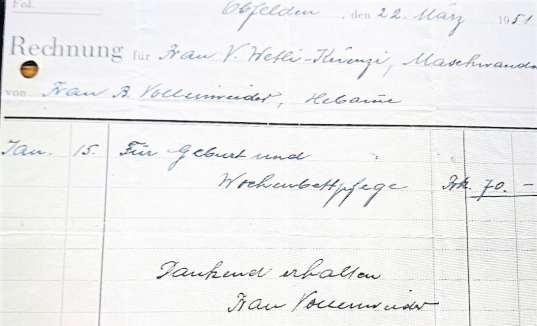 Fol.
Obfelden, den 22. März 1951
Rechnung für Frau V. Wetli-Künzi, Maschwanden
von Frau R. Vollenweider, Hebame
Jan. 15. Für Geburt und
Wochenbettpflege Frk. 70. –
Dankend erhalten
Frau Vollenweider